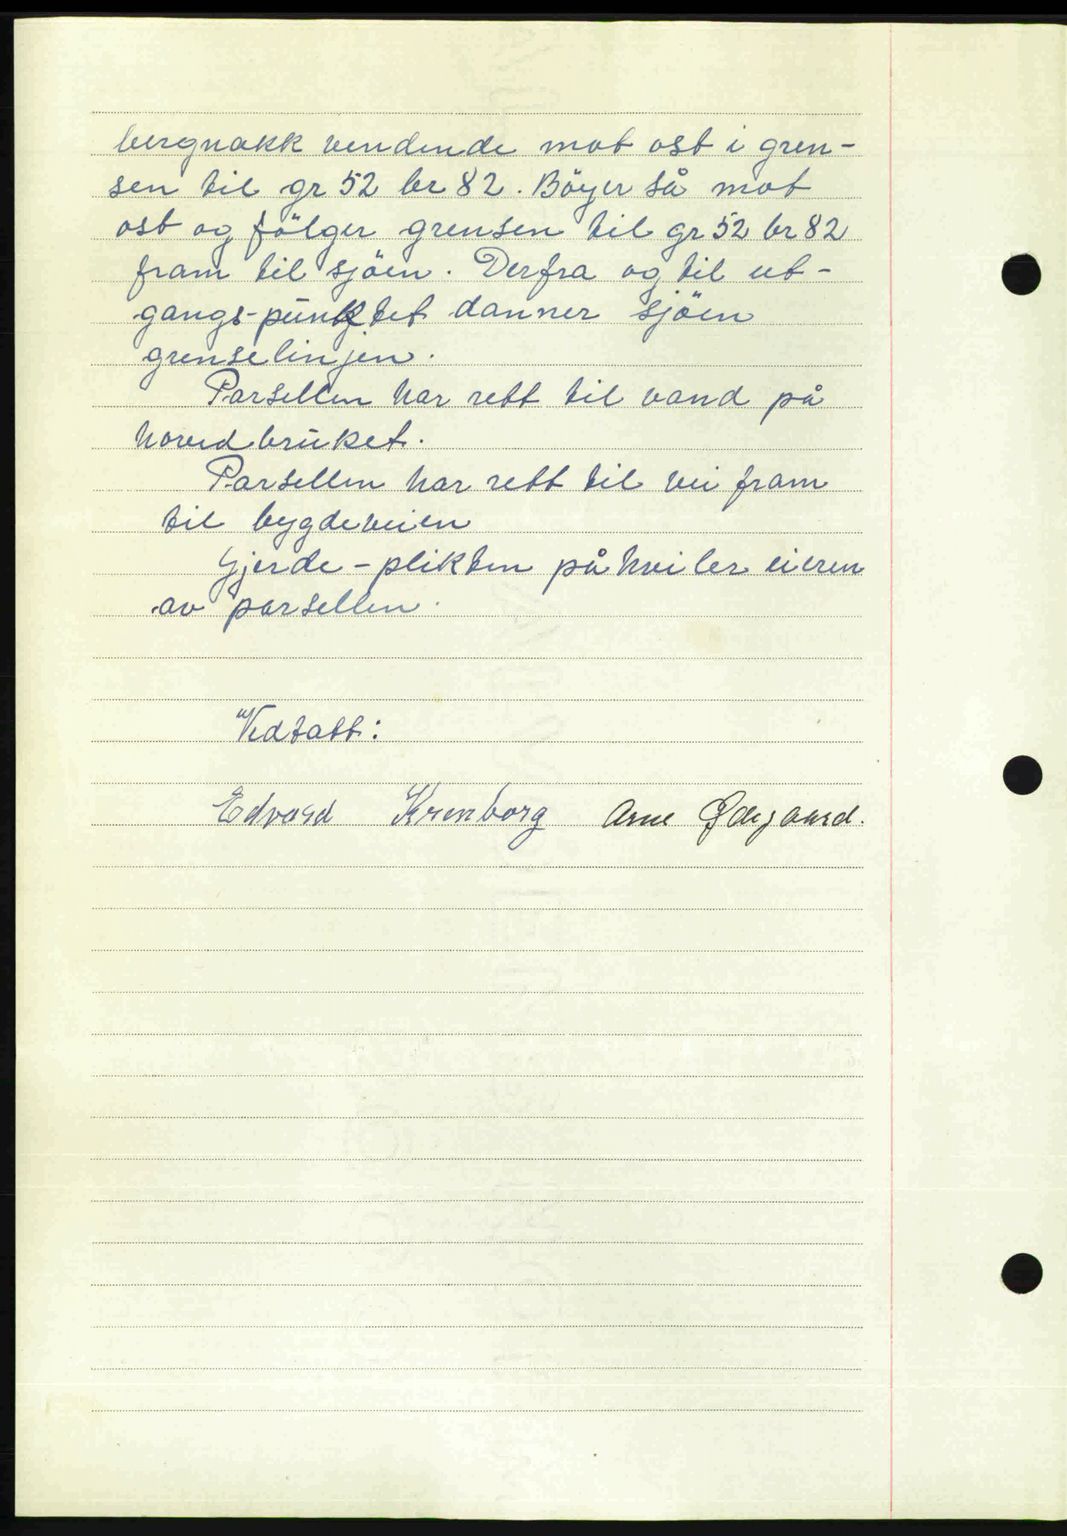 bergnakk vendende mot ost i gren-
sen til gr 52 br 82. Böyer så mot
ost og fölger grensen til gr 52 br 82
fram til sjöen. Derfra og til ut-
gangs-punktet danner sjöen
grenselinjen.
Parsellen har rett til vand på
hovedbruket.
Parsellen har rett til vei fram
til bygdeveien
Gjerde-plikten påhviler eieren
av parsellen.
Vedtatt:
Edvard Krenborg Arne Ødegaard.